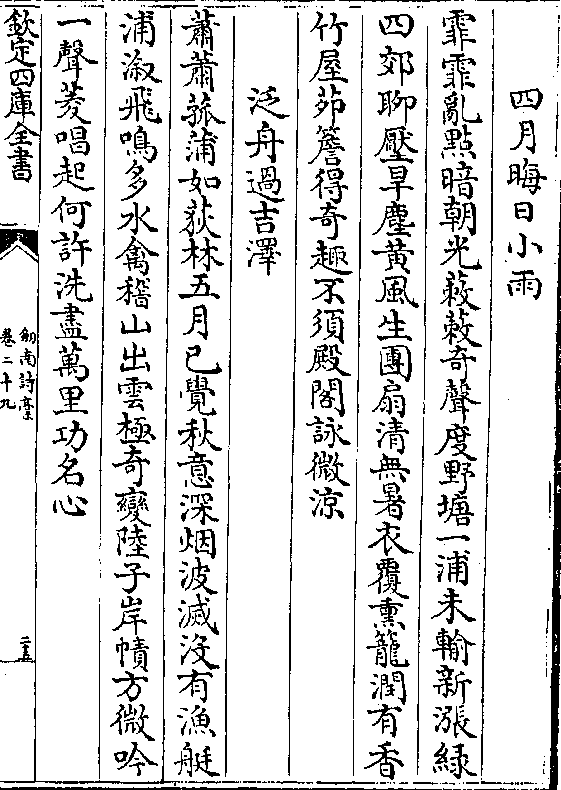 四月晦日小雨
霏霏亂點暗朝光蔌蔌奇聲度野塘一浦未輸新漲緑
四郊聊壓旱塵黄風生團扇清無暑衣覆熏籠潤有香
竹屋茆簷得奇趣不須殿閣詠微涼
泛舟過吉澤
蕭蕭菰蒲如荻林五月已覺秋意深烟波滅没有漁艇
浦溆飛鳴多水禽稽山出雲極奇變陸子岸幘方微吟
一聲菱唱起何許洗盡萬里功名心
欽定四庫全書
劒南詩藁
卷二十九
二五